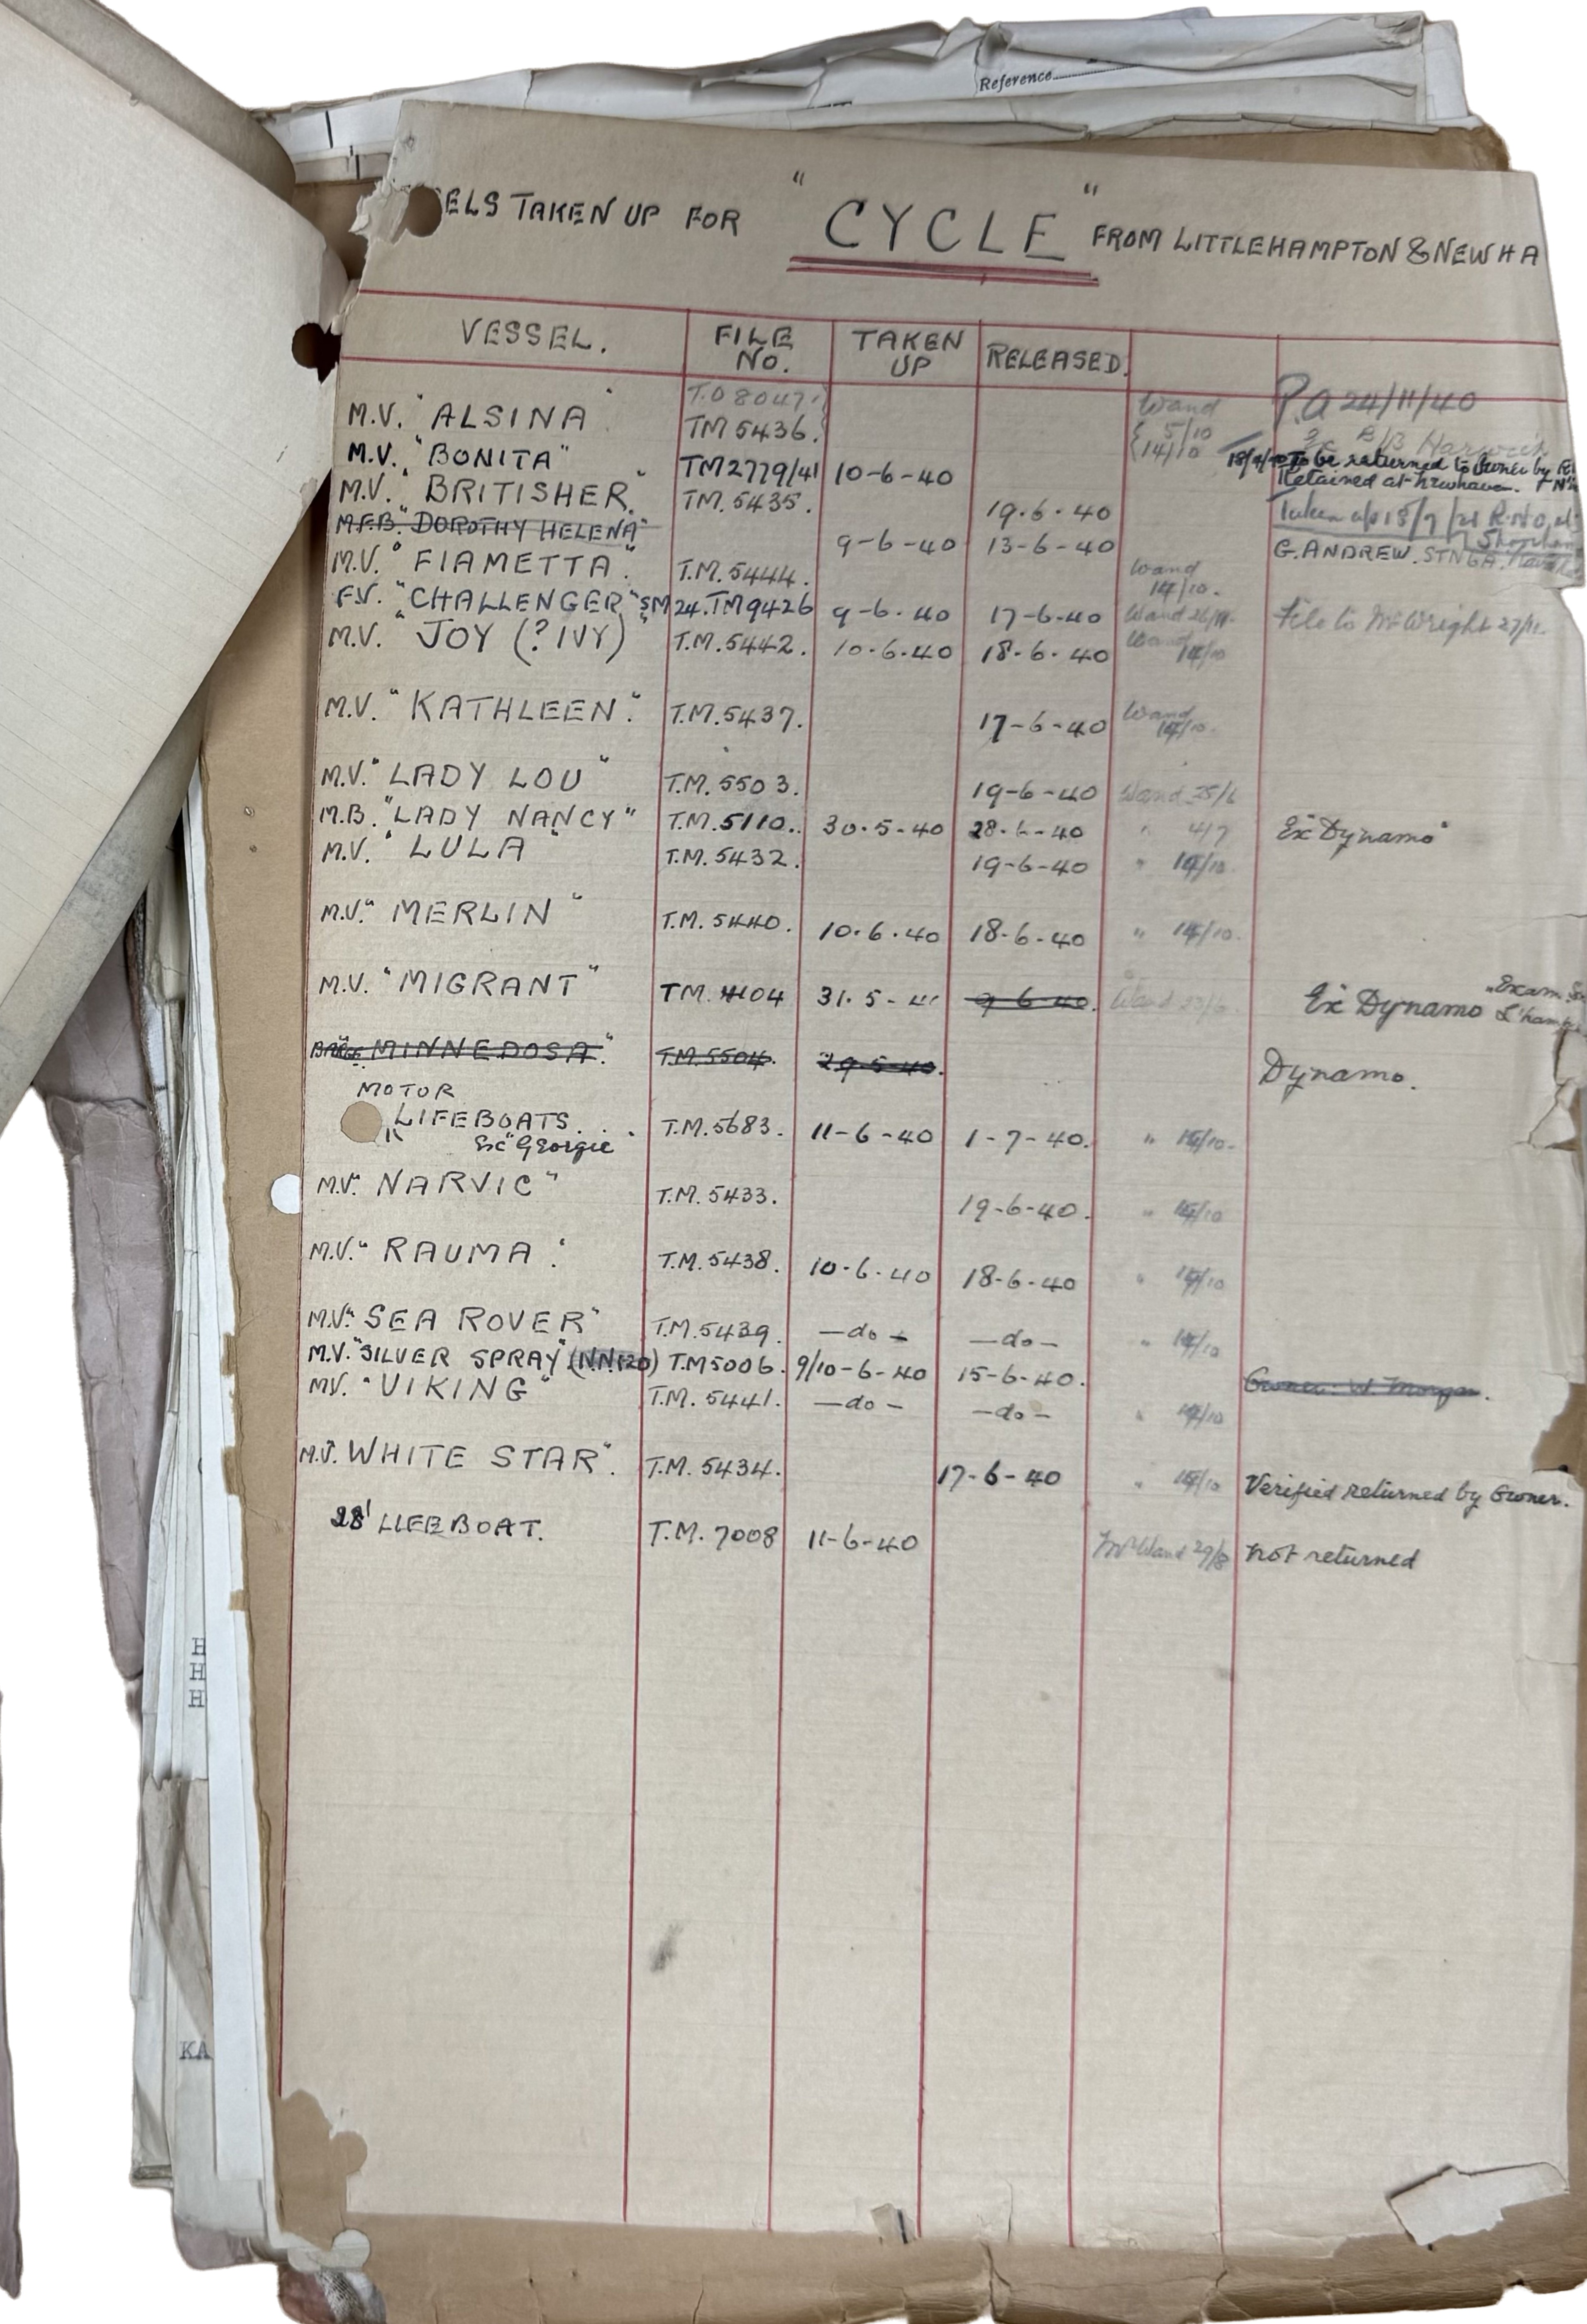 Reference
ELS TAKEN UP FOR "CYCLE" FROM LITTLEHAMPTON & NEWHA
VESSEL. FILE No. TAKEN UP RELEASED.
M.V. "ALSINA" T.D 8047 TM 5436. Wand 5/10 14/10 P.A 24/11/40
M.V. "BONITA" TM2779/41 10-6-40 To be returned to Owner by
Retained at Newhaven.
M.V. "BRITISHER" T.M. 5435. 19.6.40
M.F.B. "DOROTHY HELENA" 9-6-40 13-6-40 G. ANDREW.
M.V. "FIAMETTA". T.M. 5444. Wand 14/10.
F.V. "CHALLENGER" SM24. TM9426 9-6-40 17-6-40 Wand 26/11. File to Mr Wright 27/11.
M.V. "JOY (? IVY)" T.M. 5442. 10.6.40 18-6-40 Wand 14/10
M.V. "KATHLEEN". T.M. 5437. 17-6-40 Wand 14/10.
M.V. "LADY LOU" T.M. 5503. 19-6-40 Wand 25/6
M.B. "LADY NANCY" T.M. 5110.. 30.5-40 28-6-40 " 4/7 Ex "Dynamo"
M.V. "LULA" T.M. 5432. 19-6-40 " 14/10.
M.V. "MERLIN" T.M. 5440. 10.6.40 18-6-40 " 14/10.
M.V. "MIGRANT" TM. 4104 31.5- 9-6-40. Wand 23/6. Ex Dynamo "Exam.
BARGE "MINNEDOSA". T.M. 5504. 29-5-40. Dynamo.
MOTOR
LIFEBOATS. T.M. 5683. 11-6-40 1-7-40. " 14/10.
Ex "Georgic
M.V. "NARVIC" T.M. 5433. 19-6-40. " 14/10
M.V. "RAUMA". T.M. 5438. 10-6-40 18-6-40 " 14/10
M.V. "SEA ROVER" T.M. 5439. —do— —do— " 14/10
M.V. "SILVER SPRAY" (NN120) T.M 5006. 9/10-6-40 15-6-40. Owner: W. Morgan.
MV. "VIKING" T.M. 5441. —do— —do— " 14/10
M.V. "WHITE STAR". T.M. 5434. 17-6-40 " 14/10 Verified returned by Owner.
28' LIFEBOAT. T.M. 7008 11-6-40 Mr Wand 29/8 not returned
H
H
H
KA